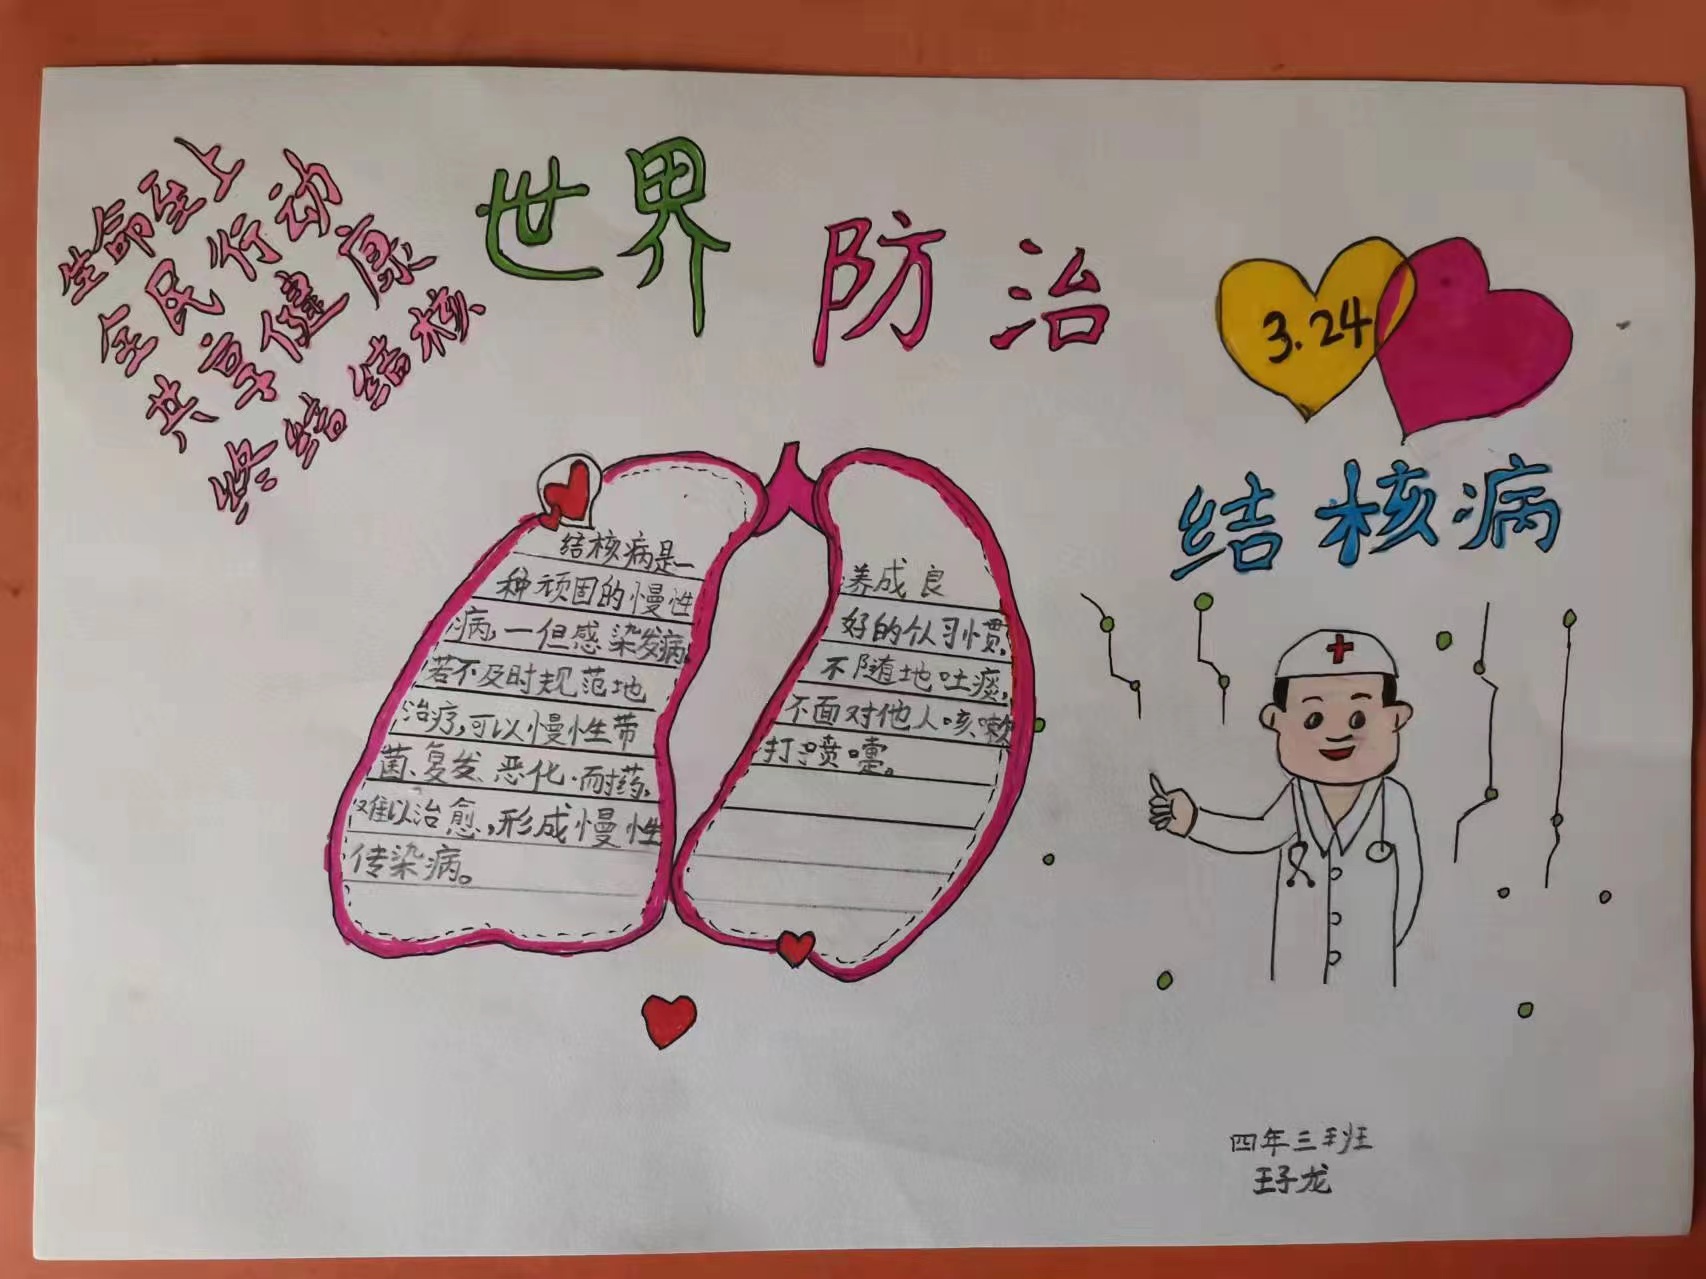 生命至上
全民行动
共享健康
终结结核
世界
防治
3.24
结核病
结核病是一
种顽固的慢性
病,一但感染发病,
若不及时规范地
治疗,可以慢性带
菌、复发、恶化、耐药,
难以治愈,形成慢性
传染病。
养成良
好的个人习惯,
不随地吐痰,
不面对他人咳嗽
打喷嚏。
四年三班
王子龙